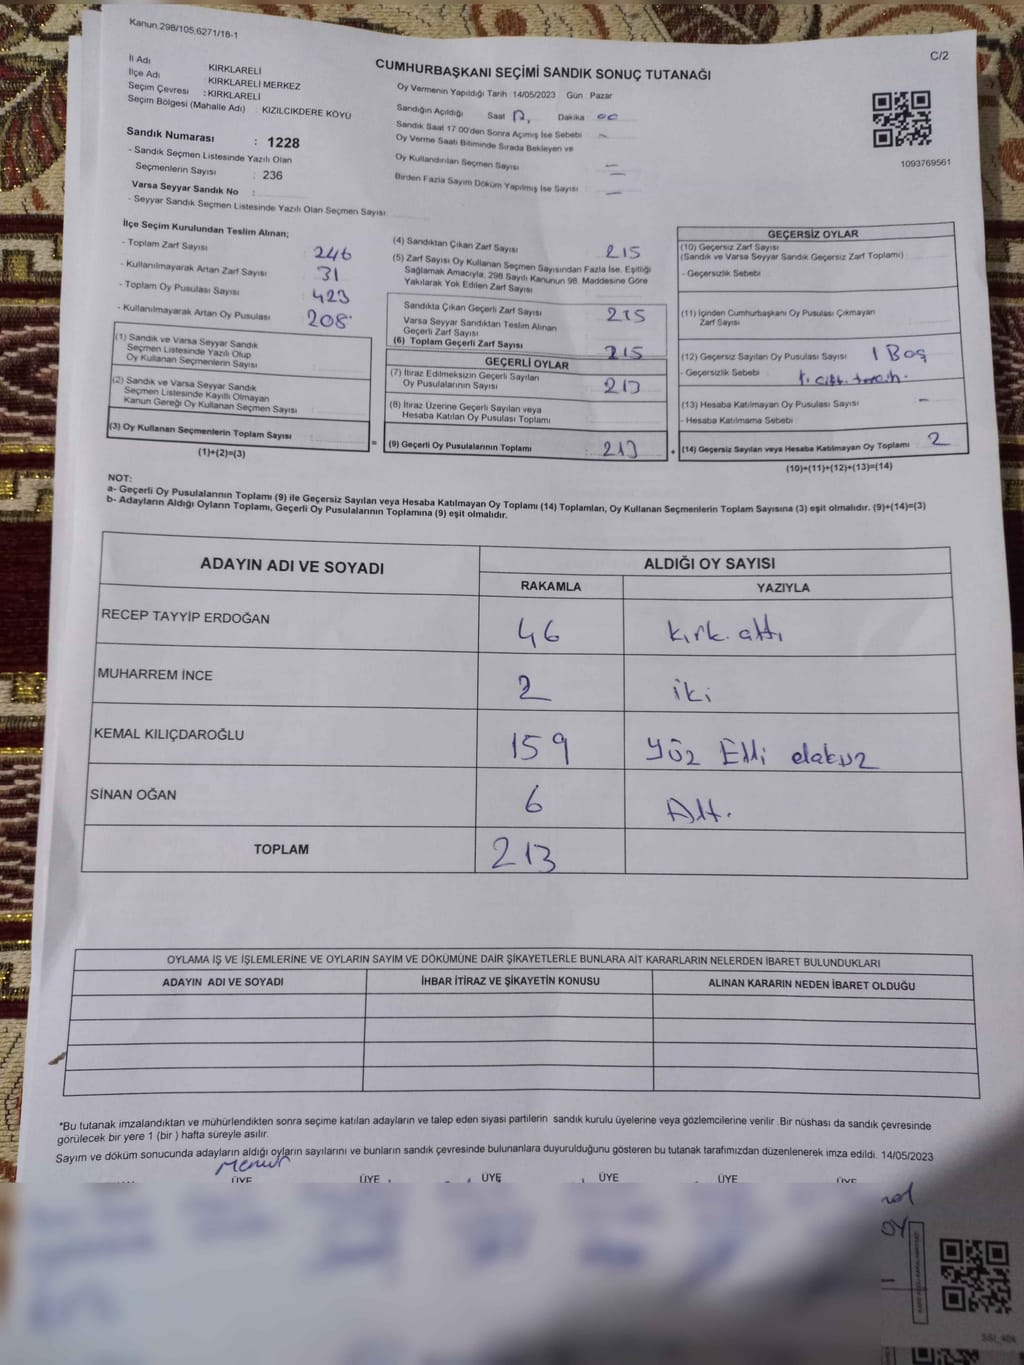 Kanun.298/105,6271/18-1
C/2
CUMHURBAŞKANI SEÇİMİ SANDIK SONUÇ TUTANAĞI
İl Adı KIRKLARELİ
İlçe Adı KIRKLARELİ MERKEZ
Seçim Çevresi : KIRKLARELİ
Seçim Bölgesi (Mahalle Adı) : KIZILCIKDERE KÖYÜ
Sandık Numarası : 1228
- Sandık Seçmen Listesinde Yazılı Olan
Seçmenlerin Sayısı : 236
Varsa Seyyar Sandık No :
- Seyyar Sandık Seçmen Listesinde Yazılı Olan Seçmen Sayısı:
Oy Vermenin Yapıldığı Tarih :14/05/2023 Gün : Pazar
Sandığın Açıldığı Saat Dakika 00
Sandık Saat 17:00'den Sonra Açımış İse Sebebi -
Oy Verme Saati Bitiminde Sırada Bekleyen ve
Oy Kullandırılan Seçmen Sayısı
Birden Fazla Sayım Döküm Yapılmış İse Sayısı
1093769561
İlçe Seçim Kurulundan Teslim Alınan;
- Toplam Zarf Sayısı 246
- Kullanılmayarak Artan Zarf Sayısı 31
- Toplam Oy Pusulası Sayısı 423
- Kullanılmayarak Artan Oy Pusulası 208
(1) Sandık ve Varsa Seyyar Sandık
Seçmen Listesinde Yazılı Olup
Oy Kullanan Seçmenlerin Sayısı
(2) Sandık ve Varsa Seyyar Sandık
Seçmen Listesinde Kayıtlı Olmayan
Kanun Gereği Oy Kullanan Seçmen Sayısı
(3) Oy Kullanan Seçmenlerin Toplam Sayısı
(1)+(2)=(3)
=
(4) Sandıktan Çıkan Zarf Sayısı 215
(5) Zarf Sayısı Oy Kullanan Seçmen Sayısından Fazla İse, Eşitliği
Sağlamak Amacıyla, 298 Sayılı Kanunun 98. Maddesine Göre
Yakılarak Yok Edilen Zarf Sayısı
Sandıkta Çıkan Geçerli Zarf Sayısı 215
Varsa Seyyar Sandıktan Teslim Alınan
Geçerli Zarf Sayısı
(6) Toplam Geçerli Zarf Sayısı 215
GEÇERLİ OYLAR
(7) İtiraz Edilmeksizin Geçerli Sayılan
Oy Pusulalarının Sayısı 213
(8) İtiraz Üzerine Geçerli Sayılan veya
Hesaba Katılan Oy Pusulası Toplamı
(9) Geçerli Oy Pusulalarının Toplamı 213
+
GEÇERSİZ OYLAR
(10) Geçersiz Zarf Sayısı
(Sandık ve Varsa Seyyar Sandık Geçersiz Zarf Toplamı)
- Geçersizlik Sebebi
(11) İçinden Cumhurbaşkanı Oy Pusulası Çıkmayan
Zarf Sayısı
(12) Geçersiz Sayılan Oy Pusulası Sayısı 1 Boş
- Geçersizlik Sebebi
(13) Hesaba Katılmayan Oy Pusulası Sayısı -
- Hesaba Katılmama Sebebi
(14) Geçersiz Sayılan veya Hesaba Katılmayan Oy Toplamı 2
(10)+(11)+(12)+(13)=(14)
NOT:
a- Geçerli Oy Pusulalarının Toplamı (9) ile Geçersiz Sayılan veya Hesaba Katılmayan Oy Toplamı (14) Toplamları, Oy Kullanan Seçmenlerin Toplam Sayısına (3) eşit olmalıdır. (9)+(14)=(3)
b- Adayların Aldığı Oyların Toplamı, Geçerli Oy Pusulalarının Toplamına (9) eşit olmalıdır.
ADAYIN ADI VE SOYADI ALDIĞI OY SAYISI
RAKAMLA YAZIYLA
RECEP TAYYİP ERDOĞAN 46 kırk altı
MUHARREM İNCE 2 iki
KEMAL KILIÇDAROĞLU 159 Yüz Elli dokuz
SİNAN OĞAN 6 Altı
TOPLAM 213
OYLAMA İŞ VE İŞLEMLERİNE VE OYLARIN SAYIM VE DÖKÜMÜNE DAİR ŞİKAYETLERLE BUNLARA AİT KARARLARIN NELERDEN İBARET BULUNDUKLARI
ADAYIN ADI VE SOYADI İHBAR İTİRAZ VE ŞİKAYETİN KONUSU ALINAN KARARIN NEDEN İBARET OLDUĞU
*Bu tutanak imzalandıktan ve mühürlendikten sonra seçime katılan adayların ve talep eden siyasi partilerin sandık kurulu üyelerine veya gözlemcilerine verilir .Bir nüshası da sandık çevresinde
görülecek bir yere 1 (bir ) hafta süreyle asılır.
Sayım ve döküm sonucunda adayların aldığı oyların sayılarını ve bunların sandık çevresinde bulunanlara duyurulduğunu gösteren bu tutanak tarafımızdan düzenlenerek imza edildi. 14/05/2023
Memur
ÜYE ÜYE ÜYE ÜYE ÜYE ÜYE